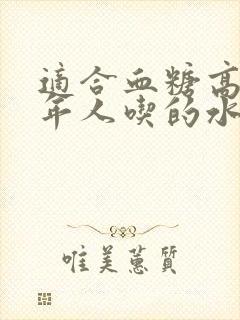 適合血糖高
年人喫的水
唯美蕙質